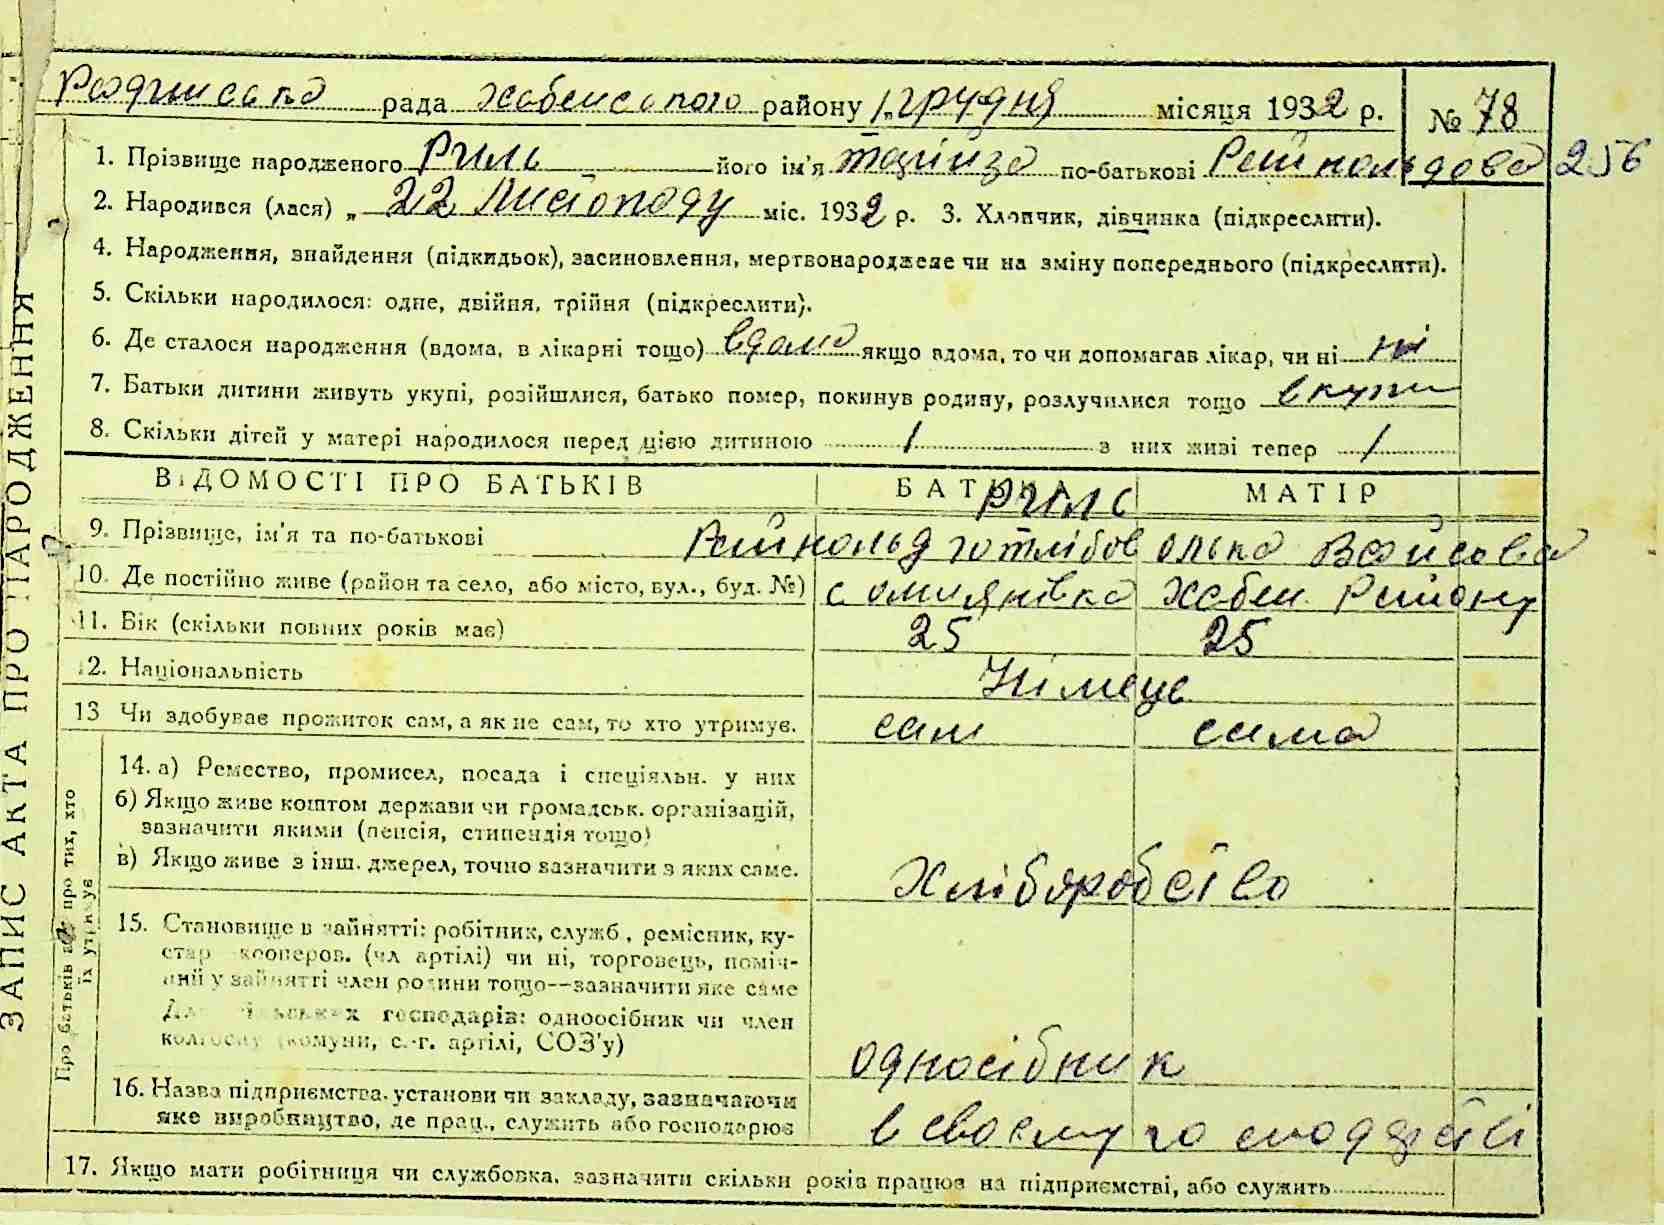 рада Хабенського району 1 грудня місяця 1932 р. № 78
1. Прізвище народженого Риль його ім'я по-батькові Рейнольдова 256
2. Народився (лася) „ 22 Листопаду міс. 1932 р. 3. Хлопчик, дівчинка (підкреслити).
4. Народження, знайдення (підкидьок), засиновлення, мертвонароджене чи на зміну попереднього (підкреслити).
5. Скільки народилося: одне, двійня, трійня (підкреслити).
6. Де сталося народження (вдома, в лікарні тощо) вдома якщо вдома, то чи допомагав лікар, чи ні ні
7. Батьки дитини живуть укупі, розійшлися, батько помер, покинув родину, розлучилися тощо вкупи
8. Скільки дітей у матері народилося перед цією дитиною 1 з них живі тепер 1
ВІДОМОСТІ ПРО БАТЬКІВ БАТЬКА МАТІР
Риль
9. Прізвище, ім'я та по-батькові Рейнольд готлібов олька
10. Де постійно живе (район та село, або місто, вул., буд. №) с Хабен. Району
11. Вік (скільки повних років має) 25 25
12. Національність Німець
13 Чи здобуває прожиток сам, а як не сам, то хто утримує. сам сама
14. а) Ремество, промисел, посада і спеціяльн. у них
б) Якщо живе коштом держави чи громадськ. організацій,
зазначити якими (пенсія, стипендія тощо)
в) Якщо живе з інш. джерел, точно зазначити з яких саме.
Хліборобство
15. Становище в зайнятті: робітник, служб., ремісник, ку-
стар кооперов. (чл артілі) чи ні, торговець, поміч-
ний у зайнятті член родини тощо—зазначити яке саме
господарів: одноосібник чи член
колгоспу (комуни, с.-г. артілі, СОЗ'у)
односібник
16. Назва підприємства, установи чи закладу, зазначаючи
яке виробництво, де прац., служить або господарює в своєму
17. Якщо мати робітниця чи службовка, зазначити скільки років працює на підприємстві, або служить
ЗАПИС АКТА ПРО НАРОДЖЕННЯ
Про батьків або про тих, хто
їх утримує